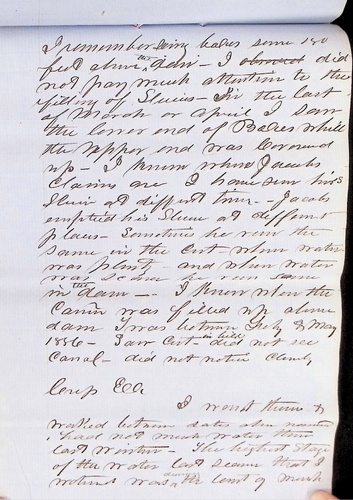 I remember seeing bales some 150
feet above the dam - I did
not pay much attention to the
filling of Sluices - In the last
of March or April I saw
the lower end of Bales while
the upper end was covered
up - I know where Jacobs
claims are I have seen his
Sluice at different times - Jacobs
emptied his Sluice at different
places - Sometimes he run the
same in the Cut - when water
was plenty - and when water
was scarce he run same
in the dam - I know when the
Cañon was filled up above
dam I was between Feby & May
1856 - Saw Cut - did not see
Canal - did not notice
Cross Ex
I went there &
worked between dates above
had not much water there
last winter - The highest stage
of the water last season that I
noticed was the last of March